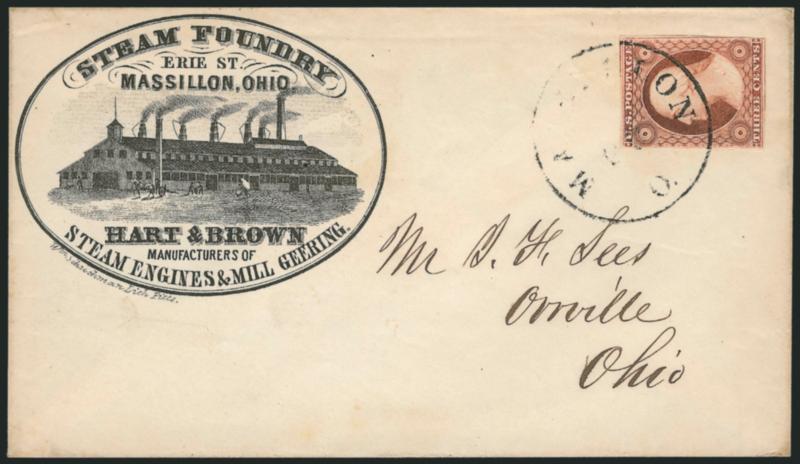 STEAM FOUNDRY
ERIE ST.
MASSILLON, OHIO
HART & BROWN
MANUFACTURERS OF
STEAM ENGINES & MILL GEERING.
Lith. Pitts.
U.S. POSTAGE
THREE CENTS
MA LON O.
Mr Lees
Orrville
Ohio